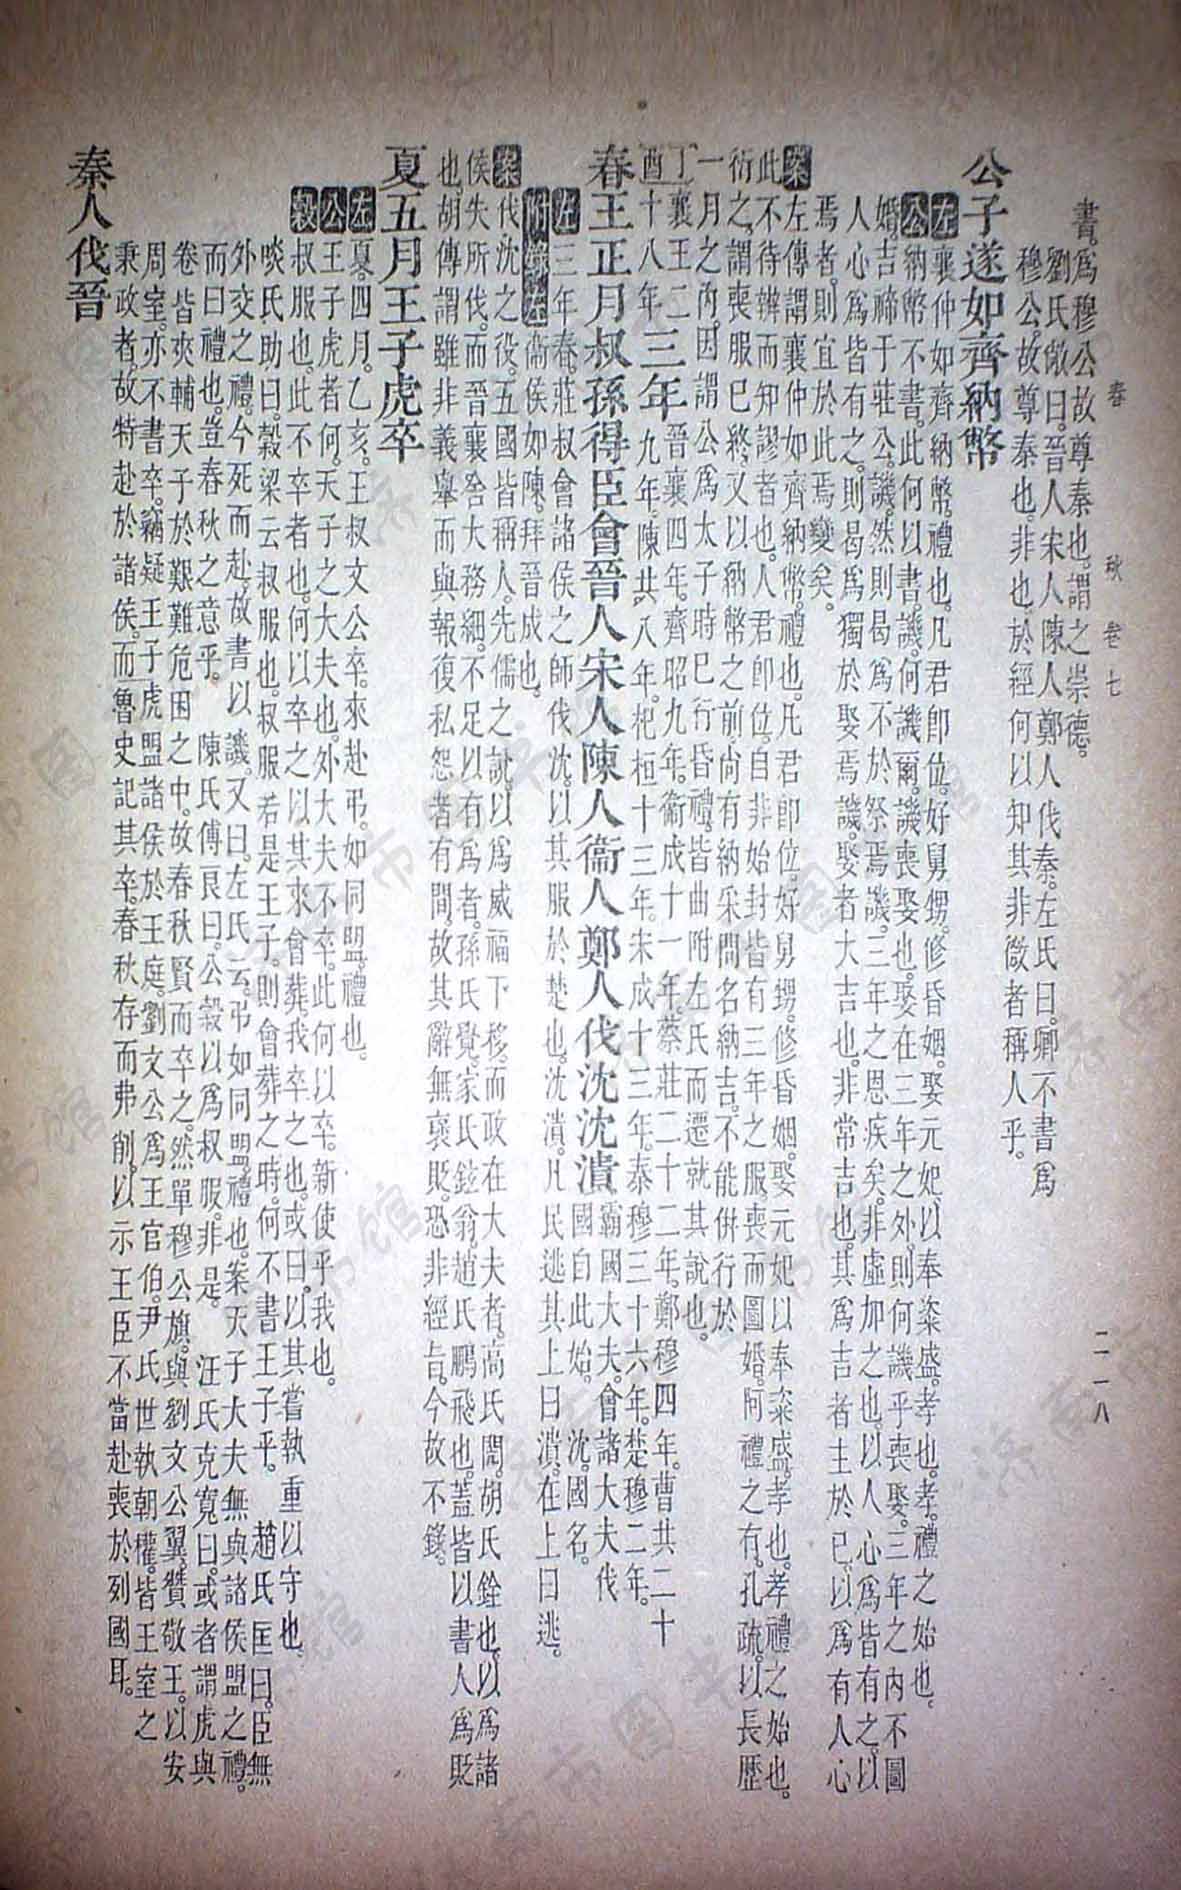 春 秋 卷七 二一八
書。爲穆公故尊秦也。謂之崇德。
劉氏敞曰。晉人宋人陳人鄭人伐秦。左氏曰。卿不書爲
穆公。故尊秦也。非也。於經何以知其非微者稱人乎。
公子遂如齊納幣
左襄仲如齊納幣。禮也。凡君卽位。好舅甥。修昏姻。娶元妃以奉粢盛。孝也。孝。禮之始也。
公納幣不書。此何以書。譏。何譏爾。譏喪娶也。娶在三年之外。則何譏乎喪娶。三年之內不圖
婚。吉禘于莊公。譏。然則曷爲不於祭焉譏。三年之恩疾矣。非虛加之也。以人心爲皆有之。以
人心爲皆有之。則曷爲獨於娶焉譏。娶者大吉也。非常吉也。其爲吉者主於己。以爲有人心
焉者。則宜於此焉變矣。
案左傳謂襄仲如齊納幣。禮也。凡君卽位。好舅甥。修昏姻。娶元妃以奉粢盛。孝也。孝禮之始也。
此不待辨而知謬者也。人君卽位。自非始封。皆有三年之服。喪而圖婚。阿禮之有。孔疏。以長歷
衍之。謂喪服已終。又以納幣之前。尚有納采問名納吉。不能併行於
一月之內。因謂公爲太子時已行昏禮。皆曲附左氏而遷就其說也。
丁襄王二 三年晉襄四年。齊昭九年。衞成十一年。蔡莊二十二年。鄭穆四年。曹共二十
酉十八年 九年。陳共八年。杞桓十三年。宋成十三年。秦穆三十六年。楚穆二年。
春王正月叔孫得臣會晉人宋人陳人衞人鄭人伐沈沈潰霸國大夫。會諸大夫伐
國自此始。沈。國名。
左三年春。莊叔會諸侯之師伐沈。以其服於楚也。沈潰。凡民逃其上曰潰。在上曰逃。
附錄左衞侯如陳。拜晉成也。
案伐沈之役。五國皆稱人。先儒之說。以爲威福下移。而政在大夫者。高氏閌。胡氏銓也。以爲諸
侯失所伐。而晉襄舍大務細。不足以有爲者。孫氏覺。家氏鉉翁。趙氏鵬飛也。蓋皆以書人爲貶
也。胡傳謂雖非義舉而與報復私怨者有間。故其辭無褒貶。恐非經旨。今故不錄。
夏五月王子虎卒
左夏。四月。乙亥。王叔文公卒。來赴弔。如同盟。禮也。
公王子虎者何。天子之大夫也。外大夫不卒。此何以卒。新使乎我也。
穀叔服也。此不卒者也。何以卒之。以其來會葬。我卒之也。或曰。以其嘗執重以守也。
啖氏助曰。穀梁云叔服也。叔服若是王子。則會葬之時。何不書王子乎。 趙氏匡曰。臣無
外交之禮。今死而赴。故書以譏。又曰。左氏云。弔如同盟。禮也。案天子大夫無與諸侯盟之禮。
而曰禮也。豈春秋之意乎。 陳氏傅良曰。公穀以爲叔服。非是。 汪氏克寬曰。或者謂虎與
卷皆夾輔天子於艱難危困之中。故春秋賢而卒之。然單穆公旗。與劉文公翼贊敬王。以安
周室。亦不書卒。竊疑王子虎盟諸侯於王庭。劉文公爲王官伯。尹氏世執朝權。皆王室之
秉政者。故特赴於諸侯。而魯史記其卒。春秋存而弗削。以示王臣不當赴喪於列國耳。
秦人伐晉